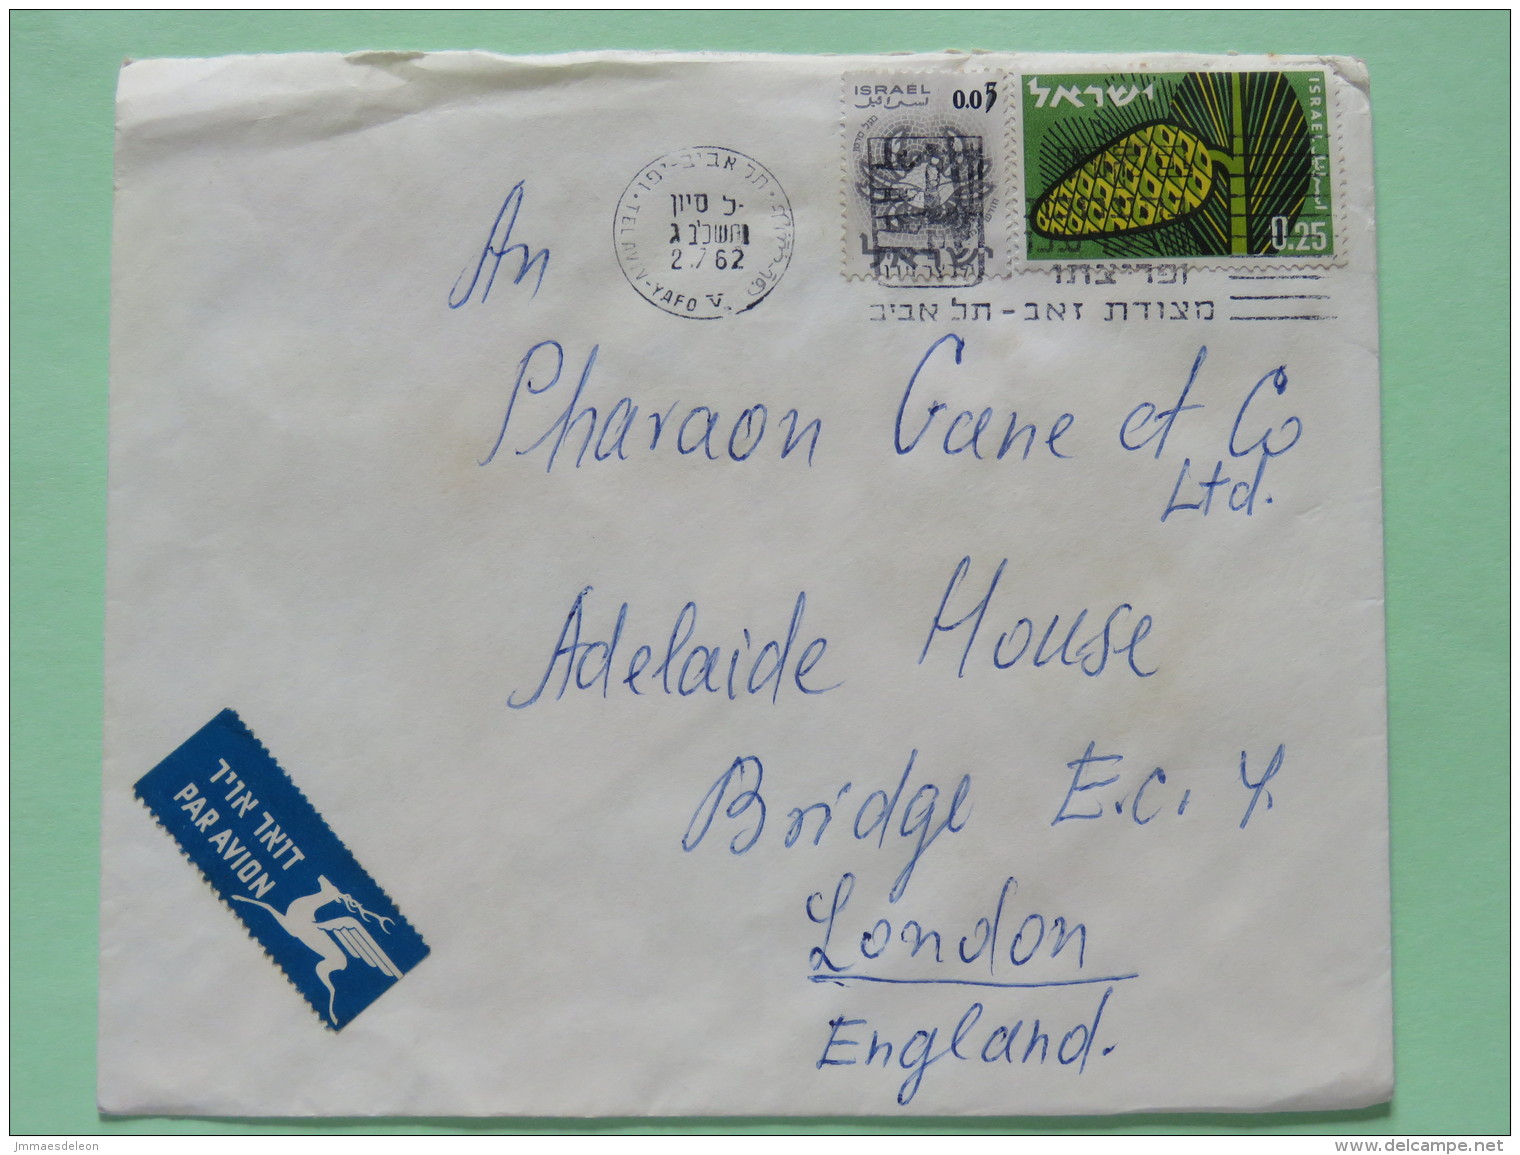 ISRAEL 0.05
ישראל
ISRAEL
0.25
תל אביב-יפו
TEL AVIV-YAFO
ל סיון
תשכ"ב
2.7.62
ישראל
ופריצתו
מצודת זאב - תל אביב
An
Pharaon Gane et Co
Ltd.
Adelaide House
Bridge E.C. 4.
London
England.
דואר אויר
PAR AVION
jmmaesdeleon
delcampe.net